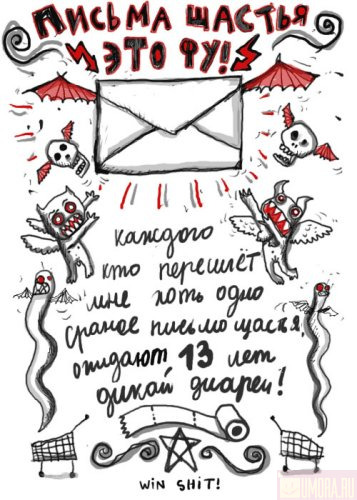 ПИСЬМА ЩАСТЬЯ
ЭТО ФУ!
каждого
кто перешлёт
мне хоть одно
сраное письмо щастья,
ожидают 13 лет
дикой диареи!
WIN SHIT!
UMORA.RU